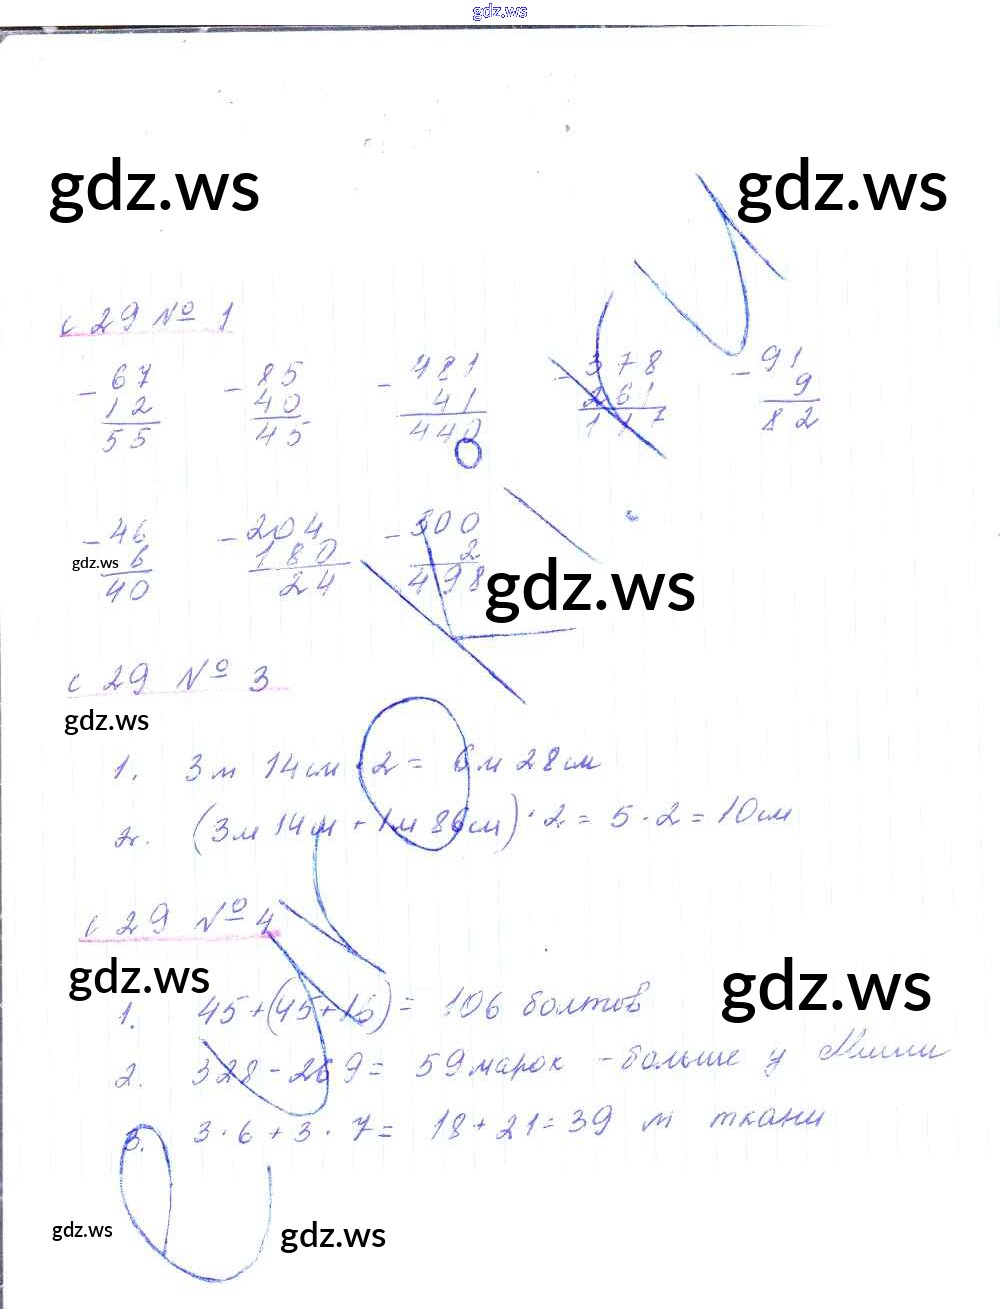 gdz.ws
gdz.ws gdz.ws
с 29 № 1
- 67 - 85 - 481 - 378 - 91
12 40 41 261 9
55 45 440 117 82
- 46 - 204 - 500
6 180 2
gdz.ws
40 24 498
gdz.ws
с 29 № 3
gdz.ws
1. 3м 14см · 2 = 6м 28см
2. (3м 14см + 1м 86см) · 2 = 5 · 2 = 10см
с 29 № 4
gdz.ws gdz.ws
1. 45 + (45 + 16) = 106 болтов
2. 328 - 269 = 59 марок - больше у Миши
3. 3 · 6 + 3 · 7 = 18 + 21 = 39 м ткани
gdz.ws gdz.ws